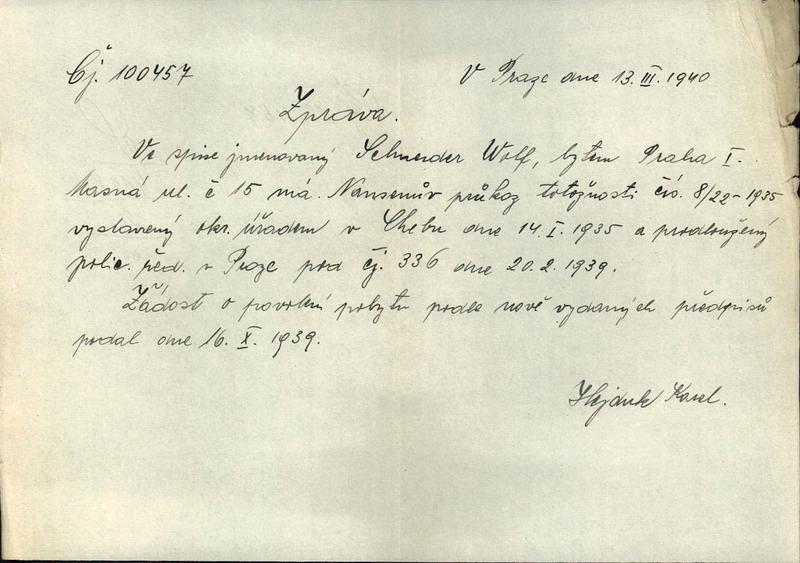 Čj. 100457
V Praze dne 13. III. 1940
Zpráva.
Ve spise jmenovaný Schneider Wolf, bytem Praha I.
Masná ul. č 15 má. Nansenův průkaz totožnosti čís. 8/22-1935
vystavený okr. úřadem v Chebu dne 14. I. 1935 a prodloužený
polic. řed. v Praze pod čj. 336 dne 20.2.1939.
Žádost o povolení pobytu podle nově vydaných předpisů
podal dne 16. X. 1939.
Hejduk Karel.